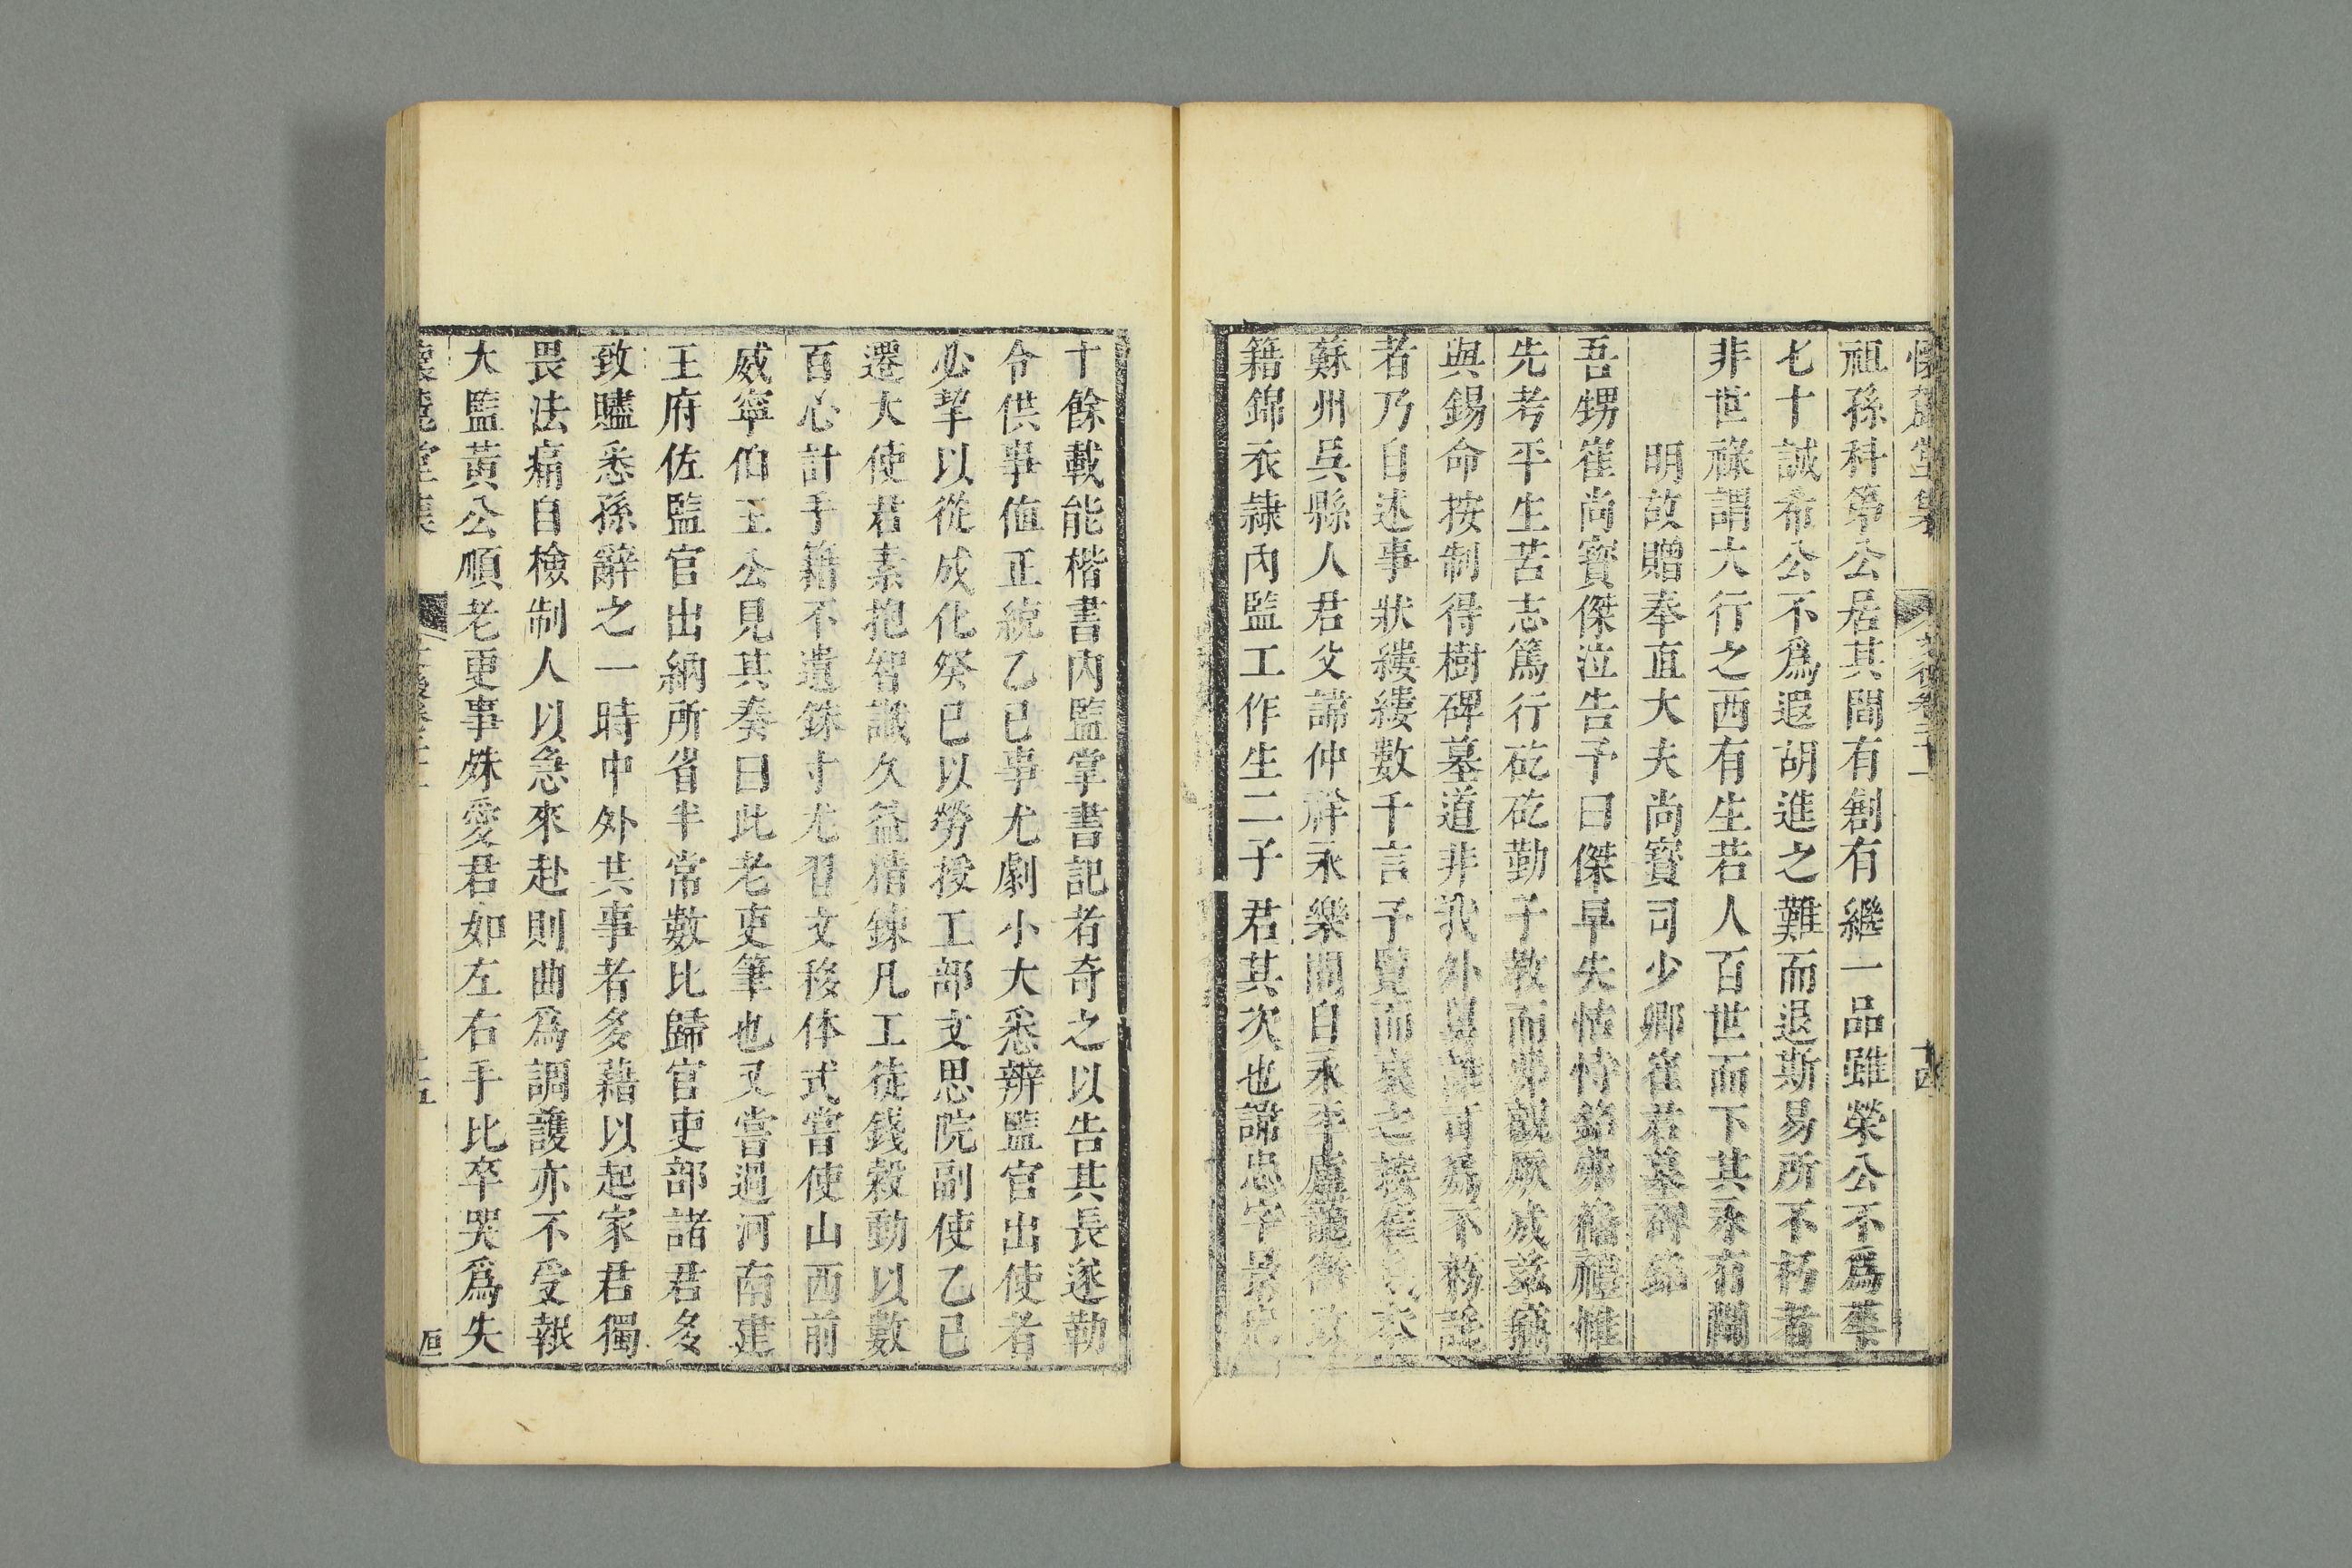 懷麓堂集 文後卷二十 十四
祖孫科第公居其間有創有繼一品雖榮公不爲華
七十誠希公不爲遐胡進之難而退斯易所不朽者
非世祿謂大行之西有生若人百世而下其永有聞
明故贈奉直大夫尚寶司少卿崔君墓碑銘
吾甥崔尚寶傑泣告予曰傑早失怙恃節弗禮惟
先考平生苦志篤行矻矻勤子教而弗覩厥成茲竊
與錫命按制得樹碑墓道非我外舅誰可爲不朽託
者乃自述事狀縷縷數千言予覽而哀之按崔氏本
蘇州吳縣人君父諱仲祥永樂間自永平盧龍衛
籍錦衣隸內監工作生二子君其次也諱忠字景
十餘載能楷書內監掌書記者奇之以告其長遂勒
令供事値正統乙巳事尤劇小大悉辨監官出使者
必挈以從成化癸巳以勞授工部文思院副使乙巳
遷大使君素抱智識久益精鍊凡工徒錢穀動以數
百心計手籍不遺銖寸尤習文移体式嘗使山西前
威寧伯王公見其奏曰此老吏筆也又嘗過河南建
王府佐監官出納所省半常數比歸官吏部諸君多
致贐悉孫辭之一時中外共事者多藉以起家君獨
畏法痛自檢制人以急來赴則曲爲調護亦不受報
大監黃公順老更事殊愛君如左右手比卒哭爲失
懷麓堂集 文後卷二十 十五